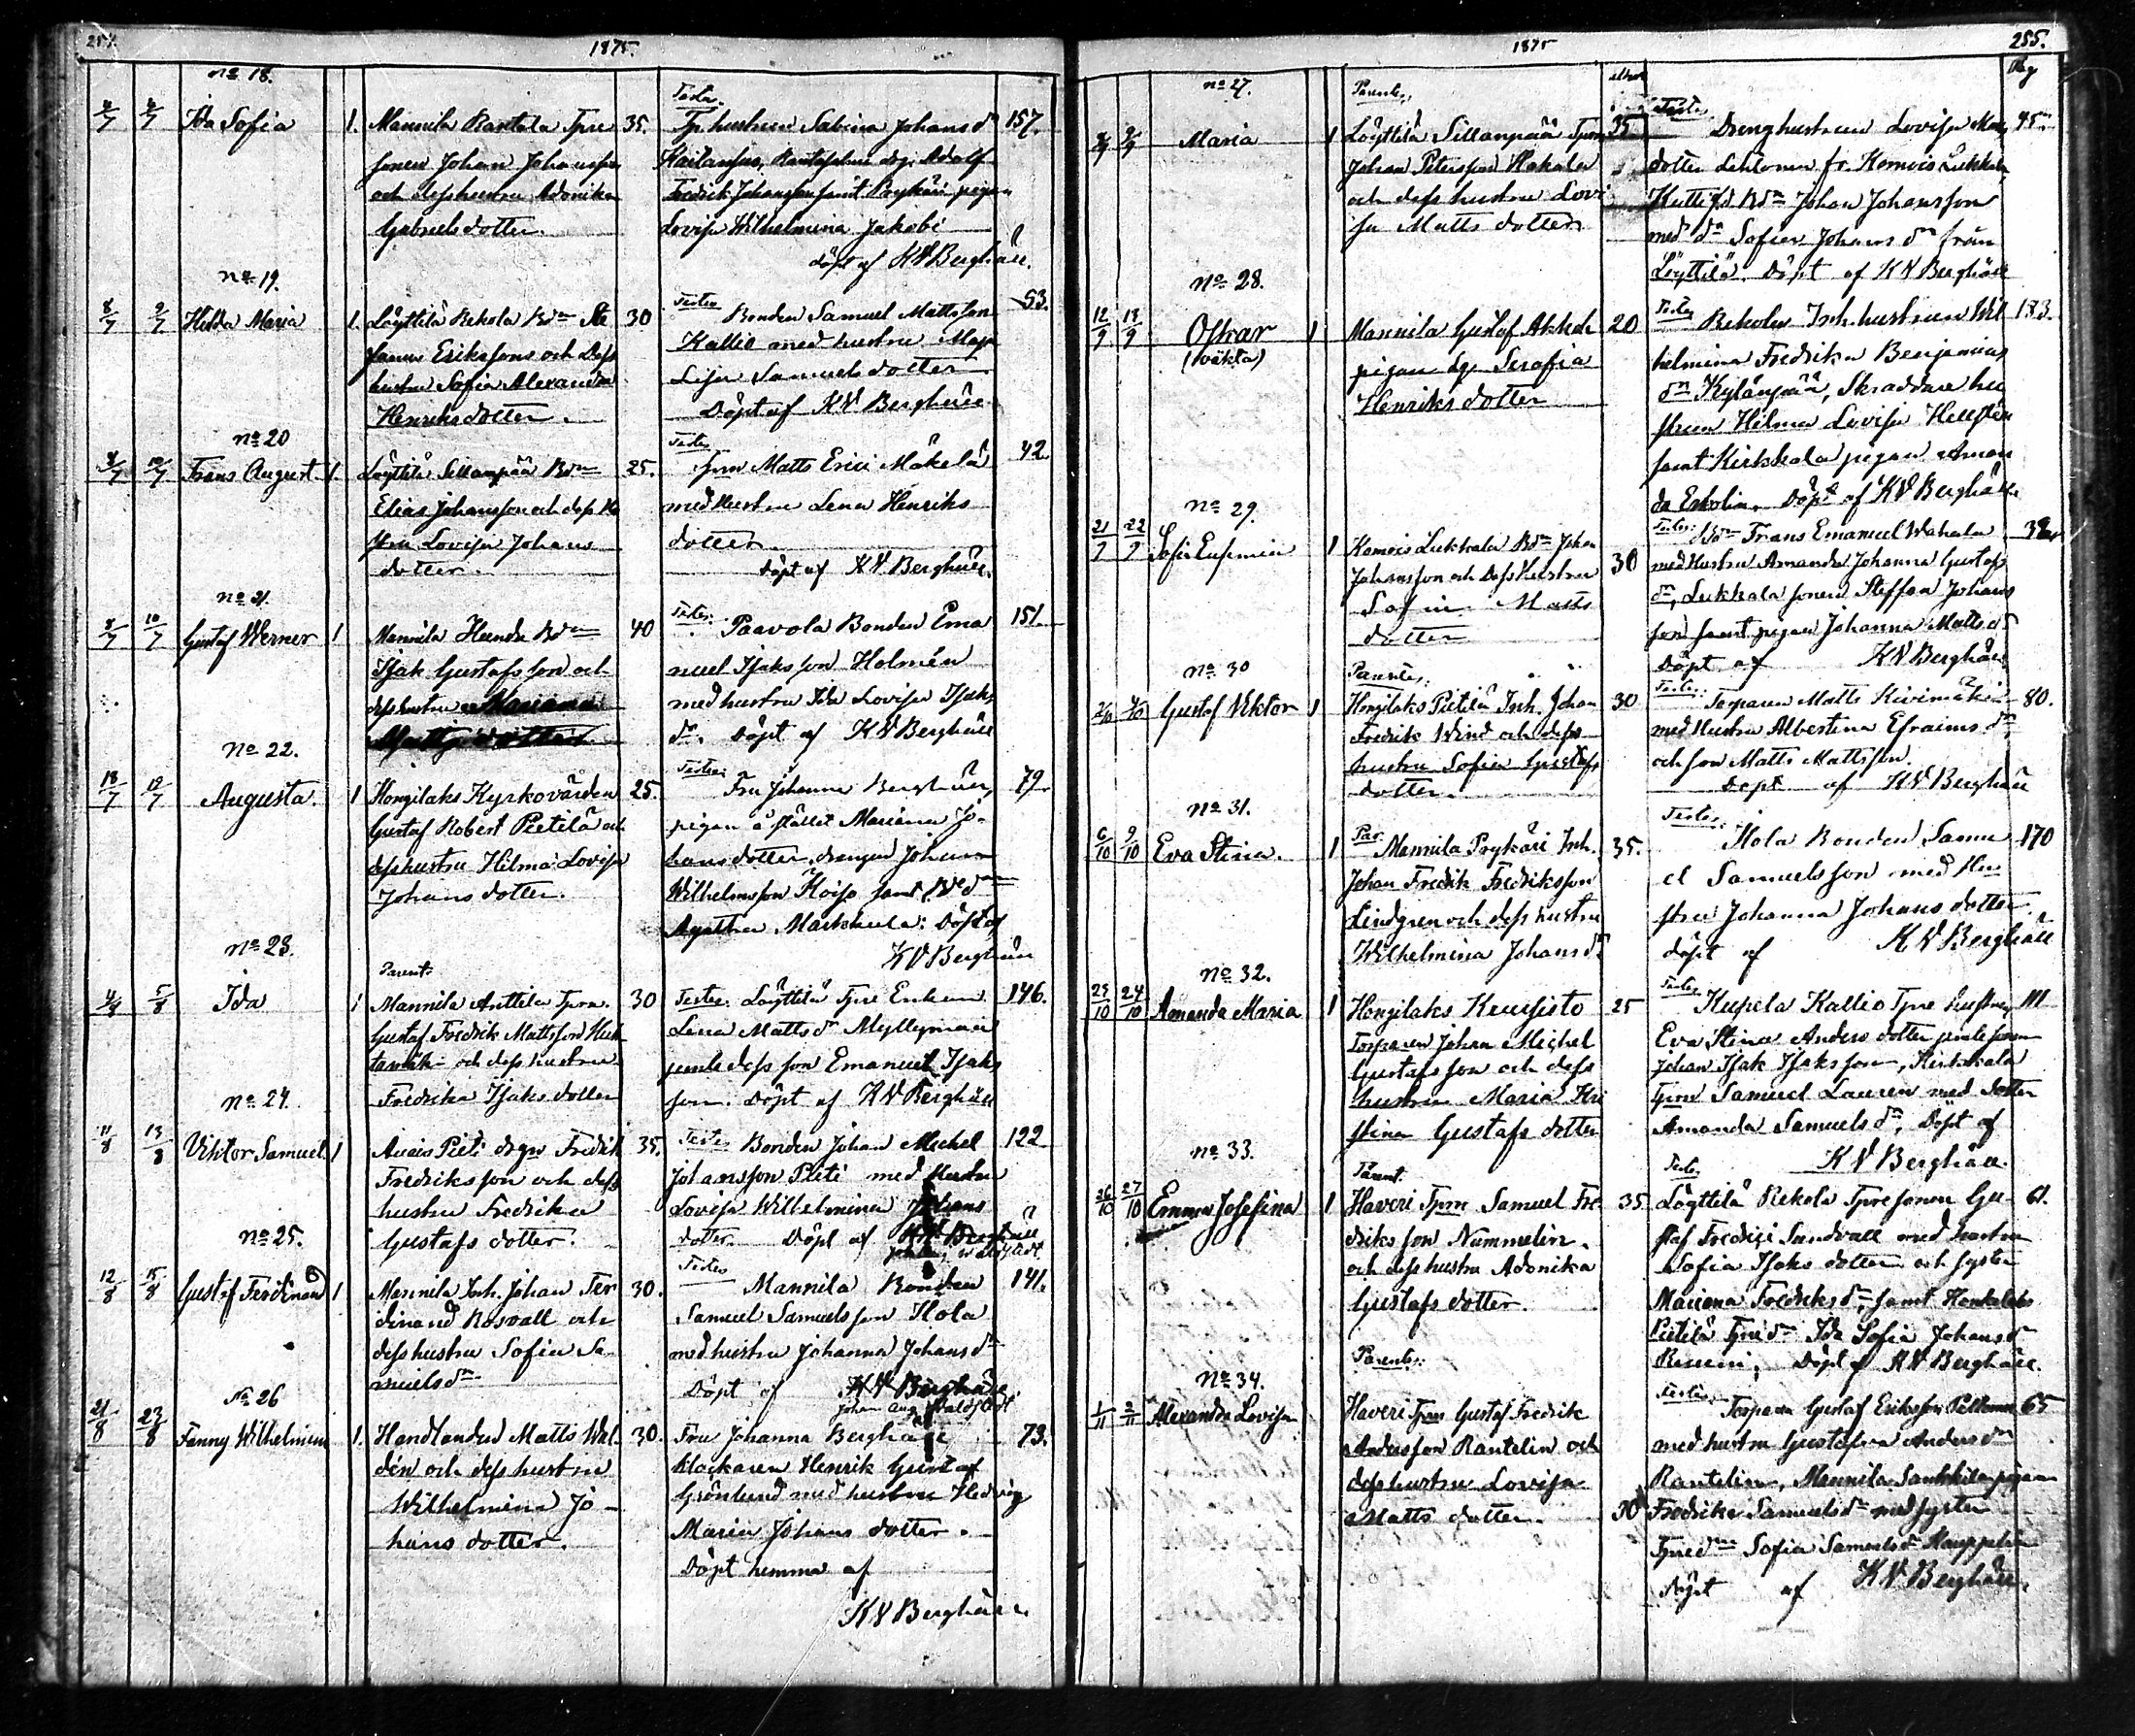 1875.
No 18.
4/7 6/7 Ida Sofia 1. Mannila Rantala Tpre
sonen Johan Johansson
och dess hustru Adonika
Gabriels dotter.
35.
Testes.
Tp. hustrun Sabina Johans dr
Kailanpää, Rantaselme drg. Adolf
Fredrik Johansson samt Prykäri pigan
Lovisa Wilhelmina Jakobi
döpt af K V Berghäll.
157.
No 19.
8/7 9/7 Hilda Maria 1. Löyttilä Rekola Bdn Ste
fanus Erikssons och dess
hustru Sofia Alexandra
Henriks dotter.
30
Testes Bonden Samuel Mattsson
Kallio med hustru Maja
Lisa Samuels dotter
Döpt af K V Berghäll
53.
No 20
8/7 10/7 Frans August 1. Löyttilä Sillanpää Bdn
Elias Johansson och dess hu
stru Lovisa Johans
dotter.
25.
Testes
Tprn Matts Erici Mäkelä
med hustru Lena Henriks
dotter
döpt af K V Berghäll.
42
No 21.
8/7 10/7 Gustaf Werner 1 Mannila Bdn
Isak Gustafsson och
dess hustru Mariana
40
Testes: Paavola Bonden Ema
nuel Isaksson Holmén
med hustru Ida Lovisa Isaks
dr. Döpt af K V Berghäll
151.
No 22.
18/7 19/7 Augusta. 1 Hongilaks Kyrkovärden
Gustaf Robert Pietilä och
dess hustru Hilma Lovisa
Johans dotter.
25.
Testes:
Fru Johanna Berghäll,
pigan å stället Mariana Jo-
hans dotter, drängen Johan
Wilhelmsson Koiso samt Bde dr
Agatha Markkula: Döpt af
K V Berghäll
79
No 23.
Parent:
4/8 5/8 Ida 1 Mannila Anttila Tprn.
Gustaf Fredrik Mattsson
och dess hustru
Fredrika Isaks dotter
30
Testes: Löyttilä Tpre Enkan
Lena Matts dr Myllymäki
jemte dess son Emanuel Isaks
son. Döpt af K V Berghäll
146.
No 24.
11/8 13/8 Viktor Samuel. 1 Aneis Pieti drgn Fredrik
Fredriksson och dess
hustru Fredrika
Gustafs dotter.
35.
Testes Bonden Johan Michel
Johansson Pieti med hustru
Lovisa Wilhelmina Johans
dotter. Döpt af K V Berghäll
122
No 25.
12/8 15/8 Gustaf Ferdinand 1 Mannila Inh. Johan Fer
dinand Rosvall och
dess hustru Sofia Sa
muels dr
30.
Testes
Mannila Bonden
Samuel Samuelsson Hola
med hustru Johanna Johans dr
Döpt af K V Berghäll
Johan Aug. Waldstedt
141.
No 26
21/8 23/8 Fanny Wilhelmina 1. Handlanden Matts Wal-
dén och dess hustru
Wilhelmina Jo-
hans dotter.
30.
Fru Johanna Berghäll
klockaren Henrik Gustaf
Grönlund med hustru Hedvig
Maria Johans dotter.
Döpt hemma af
K V Berghäll.
73.
1875
255.
Pag
No 27.
Parentes,
Maria 1 Löyttilä Sillanpää Tprn
Johan Petersson Hakala
och dess hustru Lovi
sa Matts dotter
35
Testes
Drenghustrun Lovisa Matts
dotter Lehtonen fr. Komois Lukkala,
Bdn Johan Johansson
med dr Sofia Johans dr från
Löyttilä. Döpt af K V Berghäll
45.
No 28.
12/9 13/9 Oskar 1
(oäkta)
Mannila Gustaf Akkola
pigan Lg. Serafia
Henriks dotter
20
Testes Rekola Inh. hustrun Wil
helmina Fredrika Benjamins
dr Kylänpää, Skräddare hu
strun Hilma Lovisa Hellsten
samt Kirkkala pigan Aman
da Eskolin. Döpt af K V Berghäll
133.
No 29.
21/9 22/9 Sofia Eufemia 1 Komois Lukkala Bdn Johan
Johansson och dess hustru
Sofia Matts
dotter
30
Testes: Bdn Frans Emanuel Wahala
med hustru Amanda Johanna Gustafs
dr, Lukkala sonen Steffan Johans
son samt pigan Johanna Matts dr
Döpt af K V Berghäll
No 30
Parentes:
2/10 3/10 Gustaf Viktor 1 Hongilaks Pietilä Inh. Johan
Fredrik Wind och dess
hustru Sofia Gustafs
dotter.
30
Testes: Torparen Matts Kivimäki
med hustru Albertina Efraims dr
och son Matts Mattsson.
Döpt af K V Berghäll
80.
No 31.
6/10 9/10 Eva Stina. 1 Par Mannila Prykäri Inh.
Johan Fredrik Fredriksson
Lindgren och dess hustru
Wilhelmina Johans dr
35.
Testes.
Hola Bonden Samu
el Samuelsson med hu
stru Johanna Johans dotter
döpt af K V Berghäll
170
No 32.
23/10 24/10 Amanda Maria 1 Hongilaks Keusisto
Torparen Johan Michel
Gustafsson och dess
hustru Maria Kri
stina Gustafs dotter
25
Testes Kupela Kallio Tpre hustrun
Eva Stina Anders dotter jemte sonen
Johan Isak Isaksson, Kirkkala
Tprn Samuel Lauren med dotter
Amanda Samuels dr, Döpt af
K V Berghäll.
111
No 33.
Parent.
26/10 27/10 Emma Josefina 1 Haveri Tprn Samuel Fre-
driksson Nummelin
och dess hustru Adonika
Gustafs dotter.
35
Testes
Löyttilä Rekola Tpre sonen Gu-
staf Fredrici Sandvall med hustru
Sofia Isaks dotter och syster
Mariana Fredriks dr, samt Honkalaks
Pietilä Tpre dr Ida Sofia Johans dr
Döpt af K V Berghäll.
61.
No 34.
Parentes:
1/11 2/11 Alexandra Lovisa Haveri Tprn Gustaf Fredrik
Andersson Rantelin och
dess hustru Lovisa
Matts dotter.
30
Testes. Torparen Gustaf Eriksson
med hustru Gustafva Anders dr
Rantelin, Mannila pigan
Fredrika Samuels dr med syster
Tpre dr Sofia Samuels dr Kauppila
döpt af K V Berghäll.
65